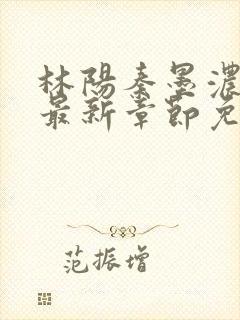 林陽秦墨濃
最新章節免
范振增